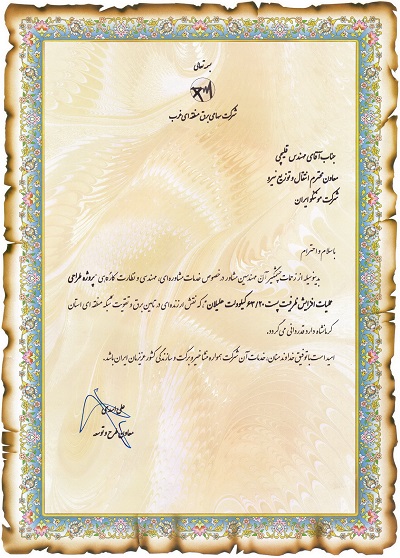 بسمه تعالی
شرکت سهامی برق منطقه ای غرب
جناب آقای مهندس قلیچی
معاون محترم انتقال و توزیع نیرو
شرکت موننکو ایران
با سلام و احترام
بدینوسیله از زحمات پیگیر آن مهندسین مشاور در خصوص خدمات مشاوره ای، مهندسی و نظارت کارگاهی "پروژه طراحی
عملیات افزایش ظرفیت پست ۶۳/۲۰ کیلوولت هلیلان" که نقش ارزنده ای در تامین برق و تقویت شبکه منطقه ای استان
کرمانشاه دارد قدردانی می گردد.
امید است با توفیق خداوند منان، خدمات آن شرکت همواره منشا خیر و برکت و سازندگی کشور عزیزمان ایران باشد.
معاون طرح و توسعه